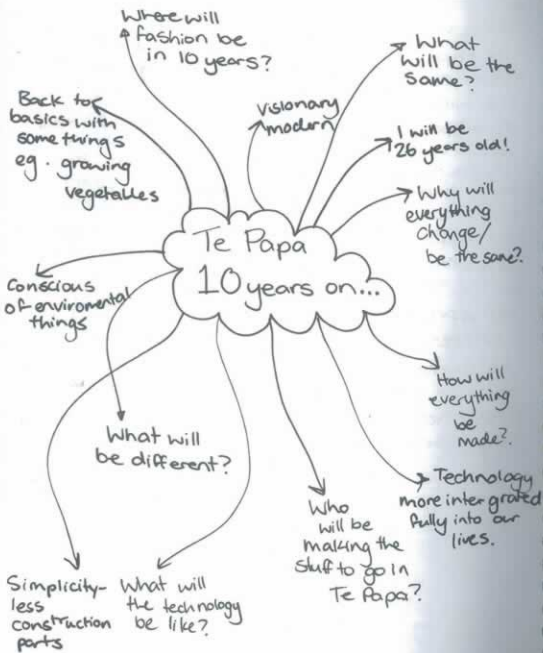 Where will
fashion be
in 10 years?
What
will be the
same?
Back to
basics with
some things
eg. growing
vegetables
visionary
modern
I will be
26 years old!
Why will
everything
change/
be the same?
Te Papa
10 years on...
Conscious
of enviromental
things
How will
everything
be
made?
What will
be different?
Technology
more intergrated
fully into our
lives.
Who
will be
making the
stuff to go in
Te Papa?
Simplicity-
less
construction
parts
What will
the technology
be like?